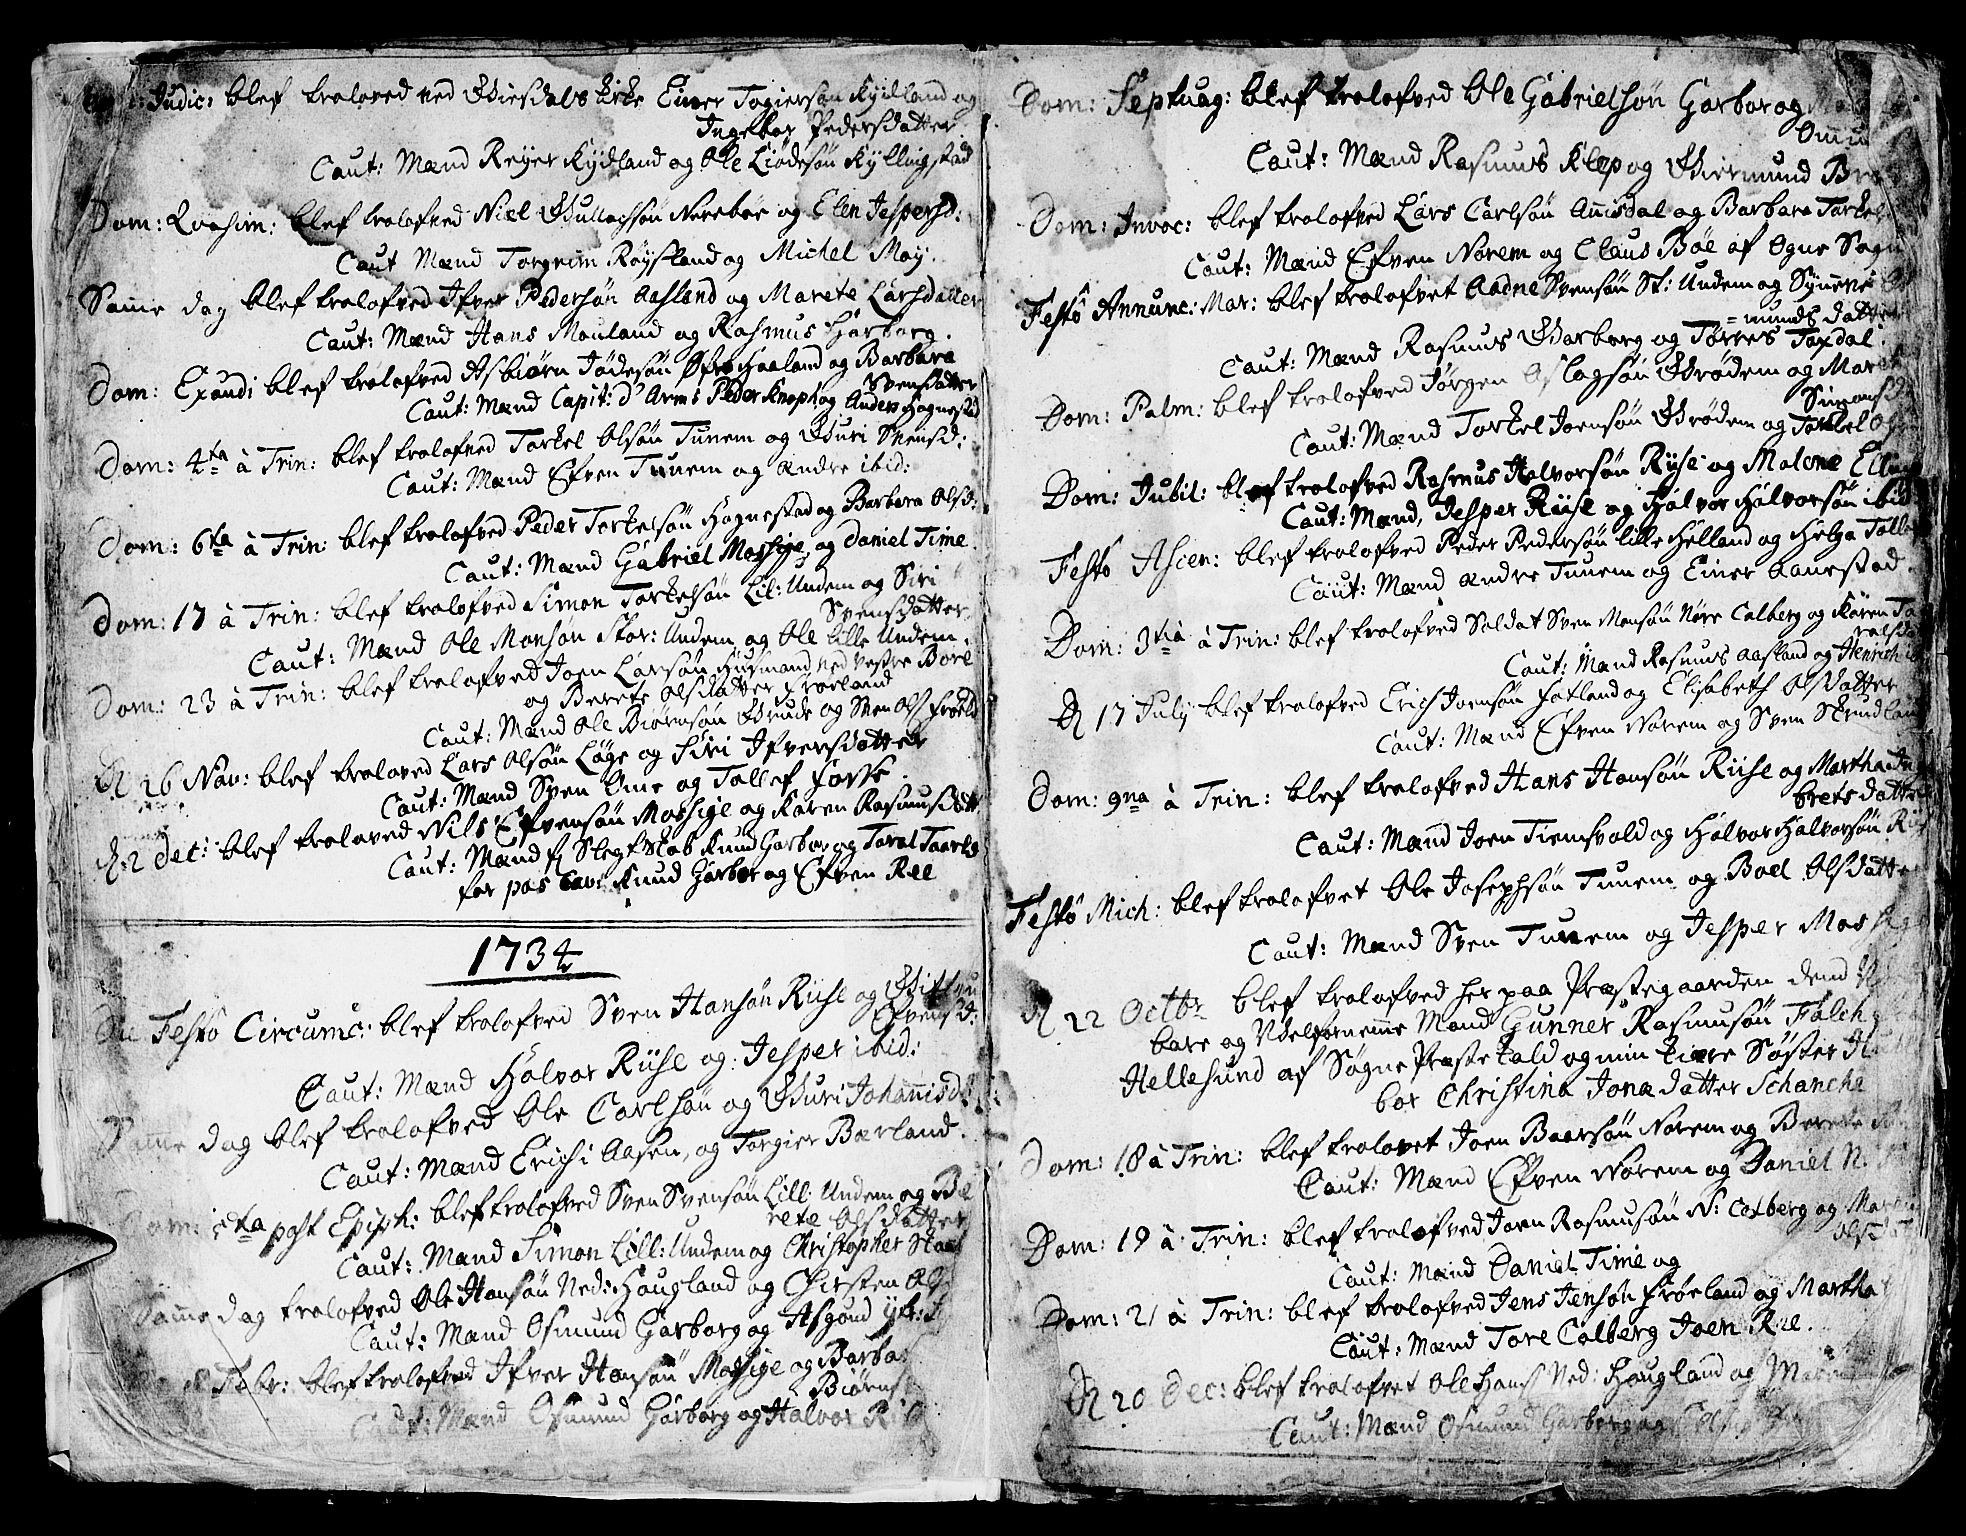 Judic: blef troloved ved Giesdals Kirke Einer Togiersøn Kydland og
Ingebor Pedersdatter
Caut: Mænd Reyer Kydland og Ole Liødesøn Kyllingstad
Dom: Qvasim: blef trolofved Niel Gullachsøn Nerebøe og Elen Jespersd:
Caut Mænd Torgrim Røysland og Michel Moy.
Samme dag blef trolofved Ifver Pedersøn Aasland og Marete Larsdatter
Caut: Mænd Hans Mouland og Rasmus Hjarborg.
Dom: Exaudi blef trolofved Asbiørn Jødesøn Øfre Haaland og Barbara
Svensdatter
Caut: Mænd Capit: d'Arms Peder Knoph og Anders Hognestad
Dom: 4ta à Trin: blef trolofved Torkel Olsøn Tunem og Guri Svensd:
Caut: Mænd Efven Tunem og Andre ibid:
Dom: 6ta à Trin: blef trolofved Peder Torkelsøn Hognestad og Barbara Olsd:
Caut: Mænd Gabriel Mossige og Daniel Time.
Dom: 17 à Trin: blef trolofved Simon Torkelsøn Lil: Undem og Siri
Svensdatter
Caut: Mænd Ole Monsøn Stor: Undem og Ole Lille Undem.
Dom: 23 à Trin: blef trolofved Joen Larsøn Husmand ved Vestre Bore
og Berete Olsdatter Frøeland
Caut: Mænd Ole Biørnsøn Grude og Sven Ols Frøeld
D 26 Nov: blef troloved Lars Olsøn Løge og Siri Ifversdatter
Caut: Mænd Sven Ome og Tollef Fosse.
D: 2 Dec: blef troloved Nils Efvensøn Mossige og Karen Rasmusdatt
Caut: Mænd f Slegtskab Knud Garbor og Torol Taarls
for pas Cav: Knud Garbor og Efven Ree
1734
Die Festo Circumc: blef trolofved Sven Hansøn Riise og
Efvensd:
Caut: Mænd Halvor Riise og Jesper ibid:
Samme dag blef trolofved Ole Carlsøn og Guri Johannisd:
Caut: Mænd Erich i Aasen, og Torgier Bærland.
Dom: 5ta post Epiph: blef trolofved Sven Svensøn Lill: Undem og Be
rete Olsdatter
Caut: Mænd Simon Lill: Undem og Christopher
Samme dag trolofved Ole Hansøn Ned: Haugland og Chirsten Ols
Caut: Mænd Osmund Garborg og Asgoud
Febr: blef trolofved Ifver Hansøn Mossige og Barba
Biørns
Caut: Mænd Osmund Garborg og Halvor
Dom: Septuag: blef trolofved Ole Gabrielsøn Garbor og
Omu
Caut: Mænd Rasmus Klep og Giermund
Dom: Invoc: blef trolofved Lars Carlsøn Anisdal og Barbara Torkel
Caut: Mænd Efven Norem og Claus Bøe af Ogne Sogn
Festo Annunc: Mar: blef trolofvet Aadne Svensøn St: Undem og Synneve
=munds datter
Caut: Mænd Rasmus Garborg og Tørres Taxdal.
Dom: Palm: blef trolofved Jørgen Aslagsøn Grødem og Maret
Simonsd
Caut: Mænd Torkel Joensøn Grødem og Torkel
Dom: Jubil: blef trolofved Rasmus Halvorsøn Riise og Malene
Caut: Mænd, Jesper Riise og Halvor Halvorsøn ibid
Festo Ascen: blef trolofved Peder Pedersøn Lille Helland og Helga Tollef
Caut: Mænd Andre Tunem og Einer Aanestad.
Dom: 3tia à Trin: blef trolofved Soldat Sven Monsøn Nøre Calberg og Karen
Caut: Mænd Rasmus Aasland og Henrich
D 17 July blef trolofved Erich Joensøn Fotland og Elisabeth Olsdatter
Caut: Mænd Efven Norem og Sven
Dom: 9na à Trin: blef trolofved Hans Hansøn Riise og Martha
brets datter
Caut: Mænd Joen Tiemsvold og Halvor Halvorsøn
Festo Mich: blef trolofvet Ole Josephsøn Tunem og Boel Olsdatter
Caut: Mænd Sven Tunem og Jesper Mossige
D 22 Octbr blef trolofved her paa Præstegaarden dend
bare og Velfornemme Mand Gunner Rasmusøn Falch
Hellesund af Søgne Præstekald og min kiære Søster
bor Christina Jonædatter Schanche
Dom: 18 à Trin: blef trolovet Joen Baarsøn Norem og Berete
Caut: Mænd Efven Norem og Daniel N.
Dom: 19 à Trin: blef trolofved Joen Rasmusøn N: Calberg og Maren
Olsd
Caut: Mænd Daniel Time og
Dom: 21 à Trin: blef trolofved Jens Jensøn Frøeland og Martha
Caut: Mænd Tore Calberg Joen Ree.
D 20 Dec: blef trolofvet Ole Hans Ned: Haugland og
Caut: Mænd Osmund Garborg og